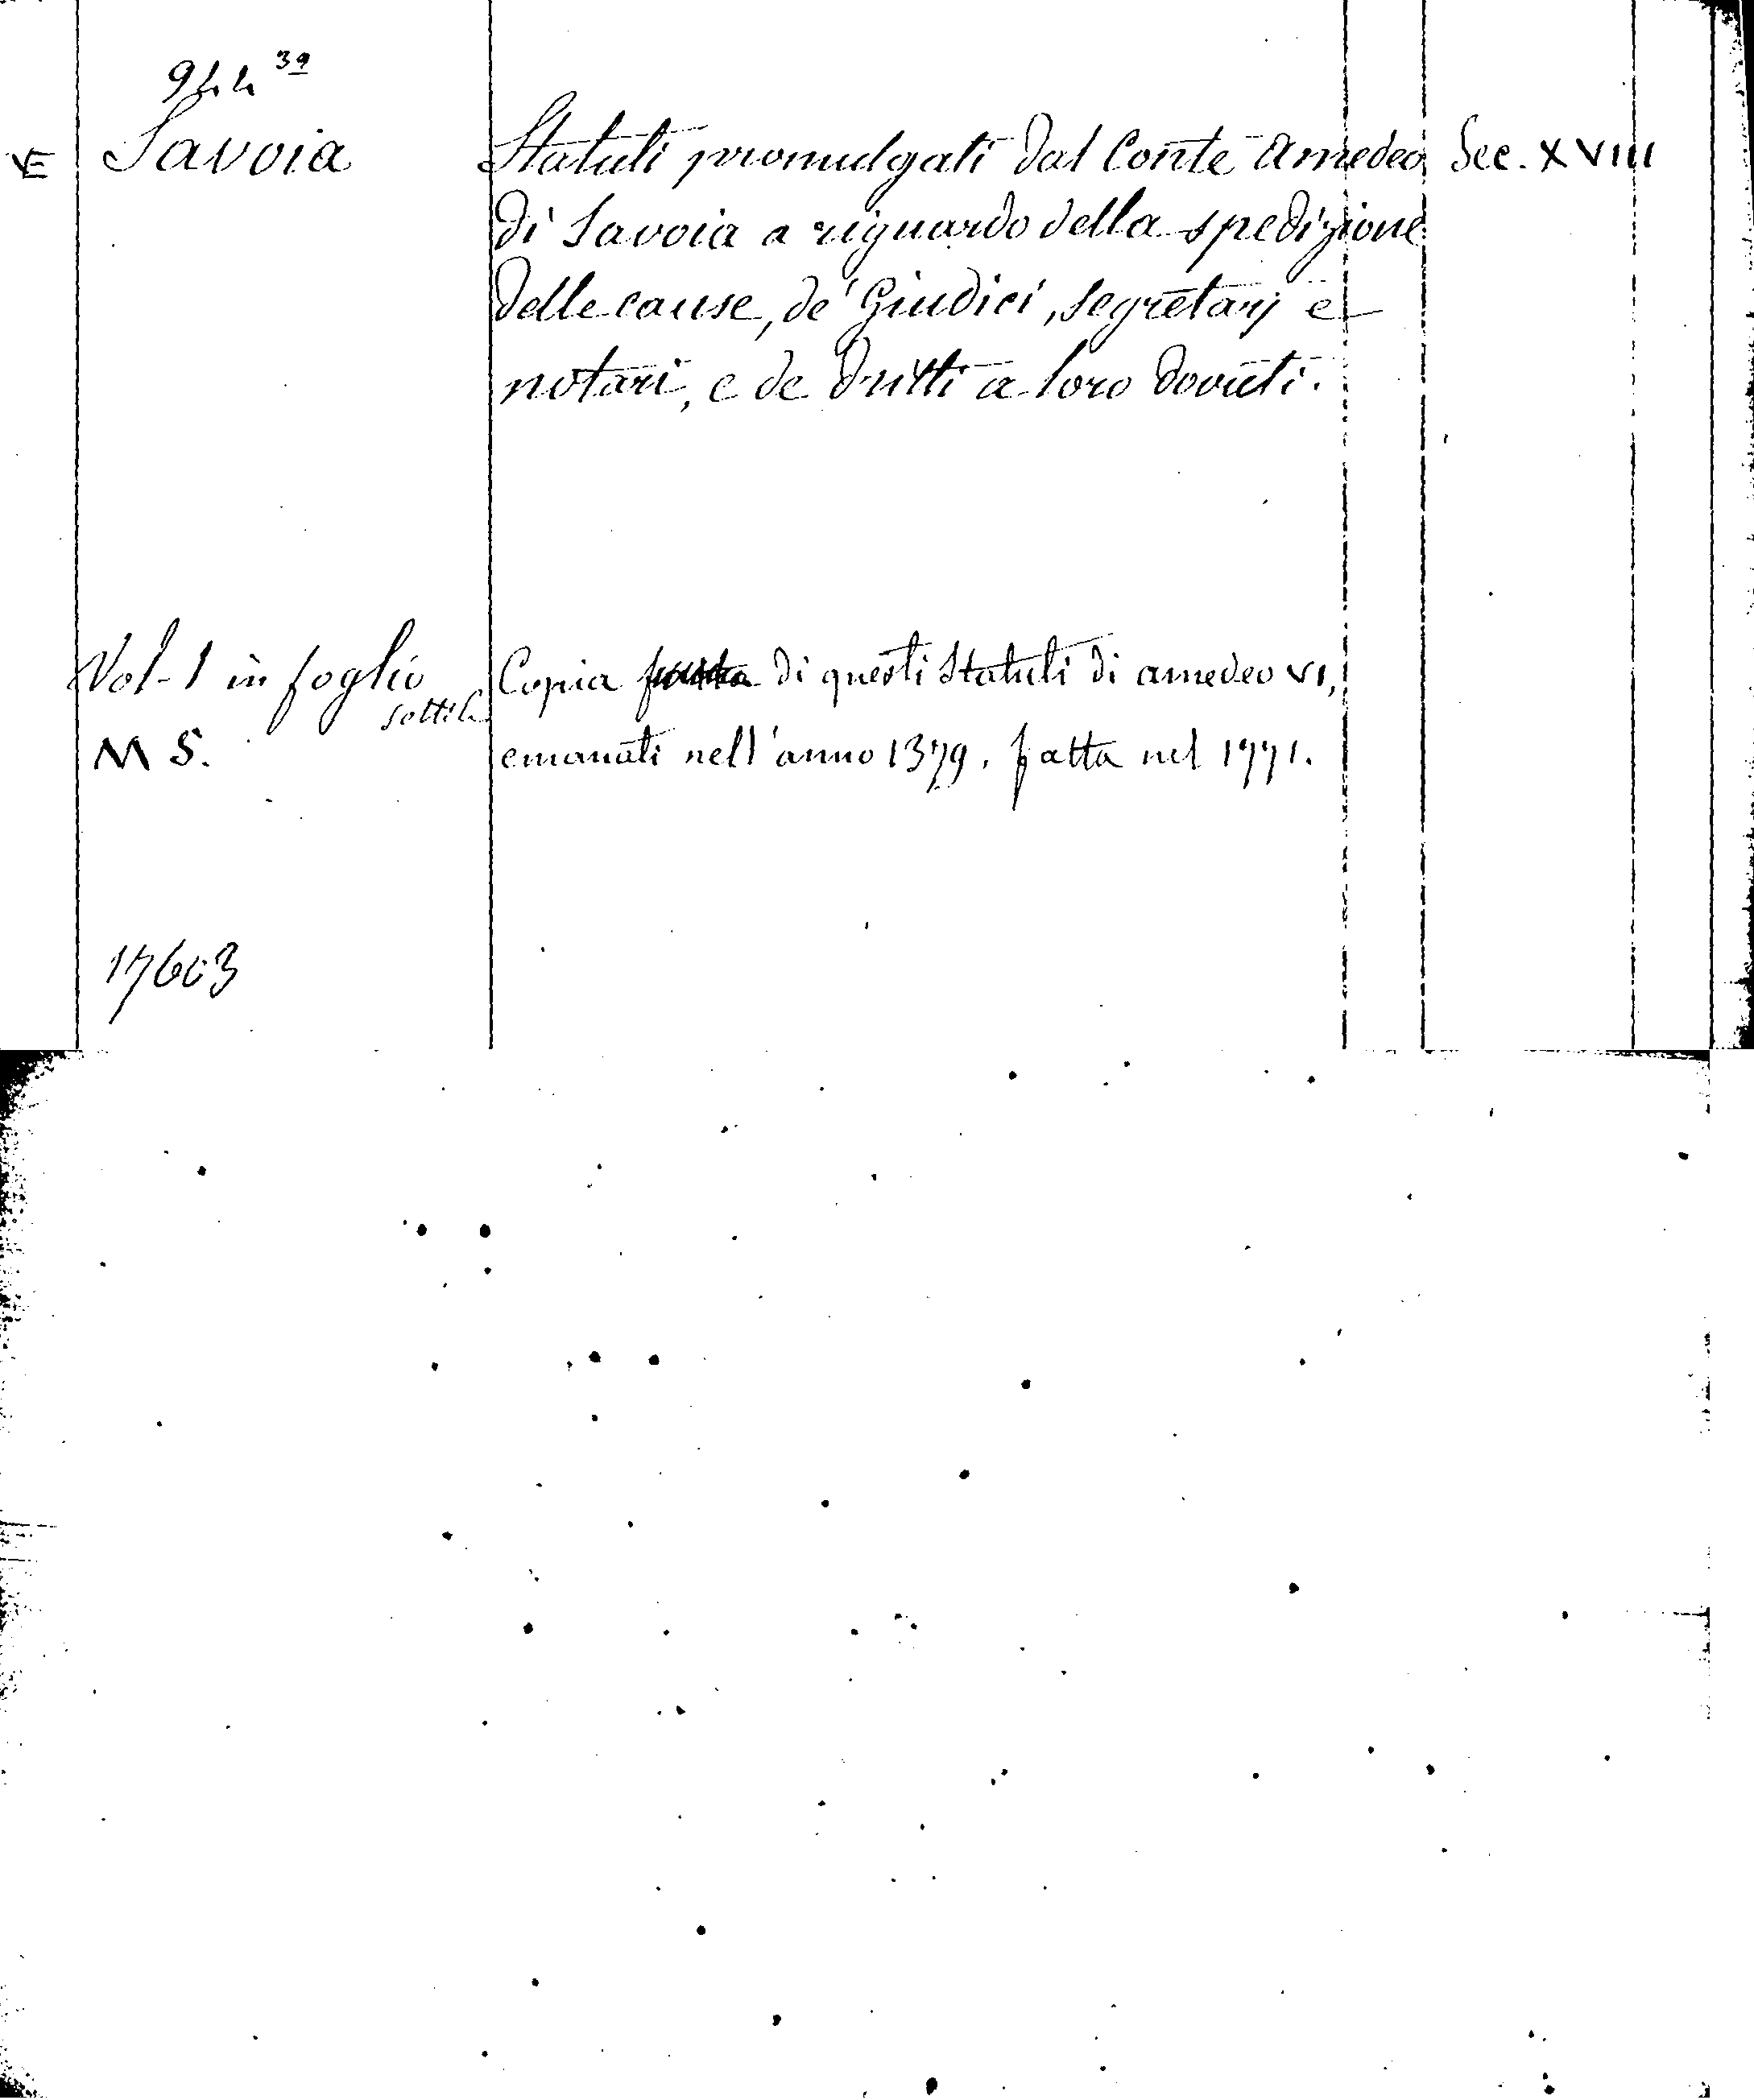 944 39
VE Savoia Statuti promulgati dal Conte Amedeo Sec. XVIII
di Savoia a riguardo della spedizione
delle cause, de' Giudici, Segretarj e
notari, e de dritti a loro dovuti.
Vol. 1 in foglio Copia di questi Statuti di Amedeo VI,
sottile
MS. emanati nell'anno 1379, fatta nel 1771.
17603